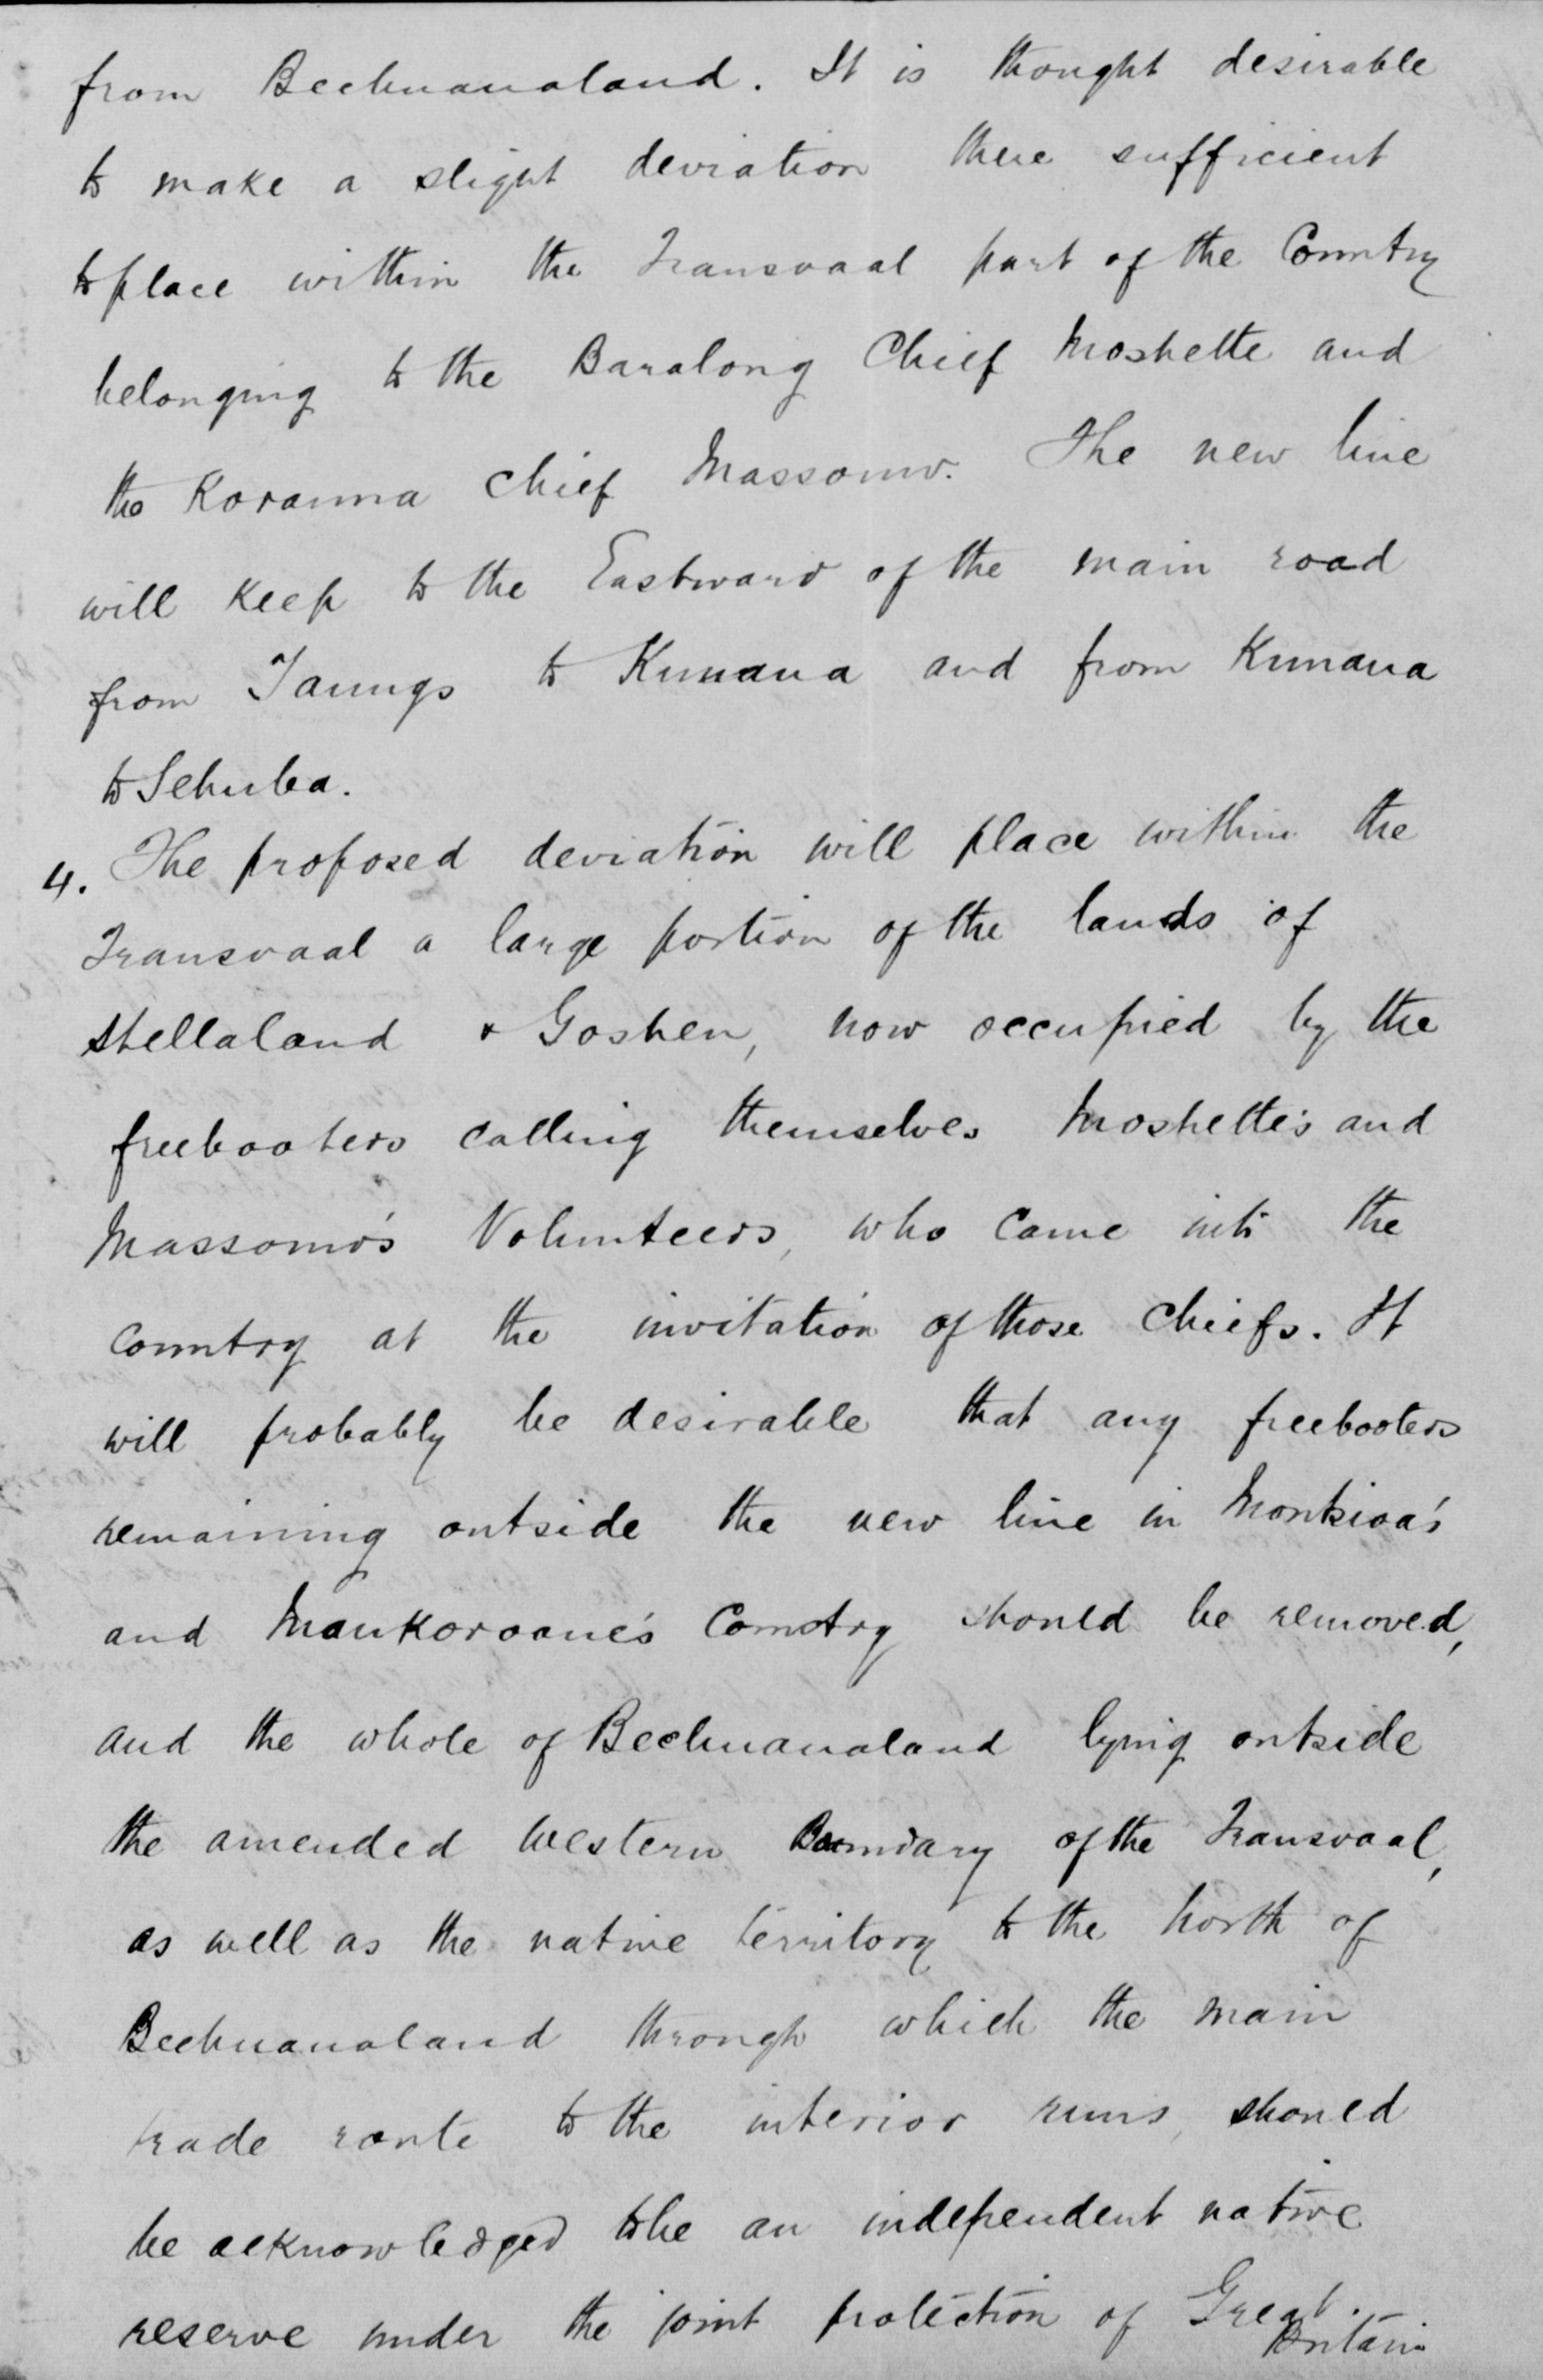 from Bechuanaland. It is thought desirable
to make a slight deviation there sufficient
to place within the Transvaal part of the Country
belonging to the Baralong Chief Moshette and
the Koranna Chief Massouw. The new line
will keep to the Eastward of the main road
from Taungs to Kunana and from Kunana
to Sehuba.
4. The proposed deviation will place within the
Transvaal a large portion of the lands of
Stellaland & Goshen, now occupied by the
freebooters calling themselves Moshette's and
Massouw's Volunteers, who came into the
Country at the invitation of those Chiefs. It
will probably be desirable that any freebooters
remaining outside the new line in Montsioa's
and Mankoroane's Country should be removed,
and the whole of Bechuanaland lying outside
the amended Western Boundary of the Transvaal,
as well as the native territory to the north of
Bechuanaland through which the main
trade route to the interior runs, should
be acknowledged to be an independent native
reserve under the joint protection of Great
Britain